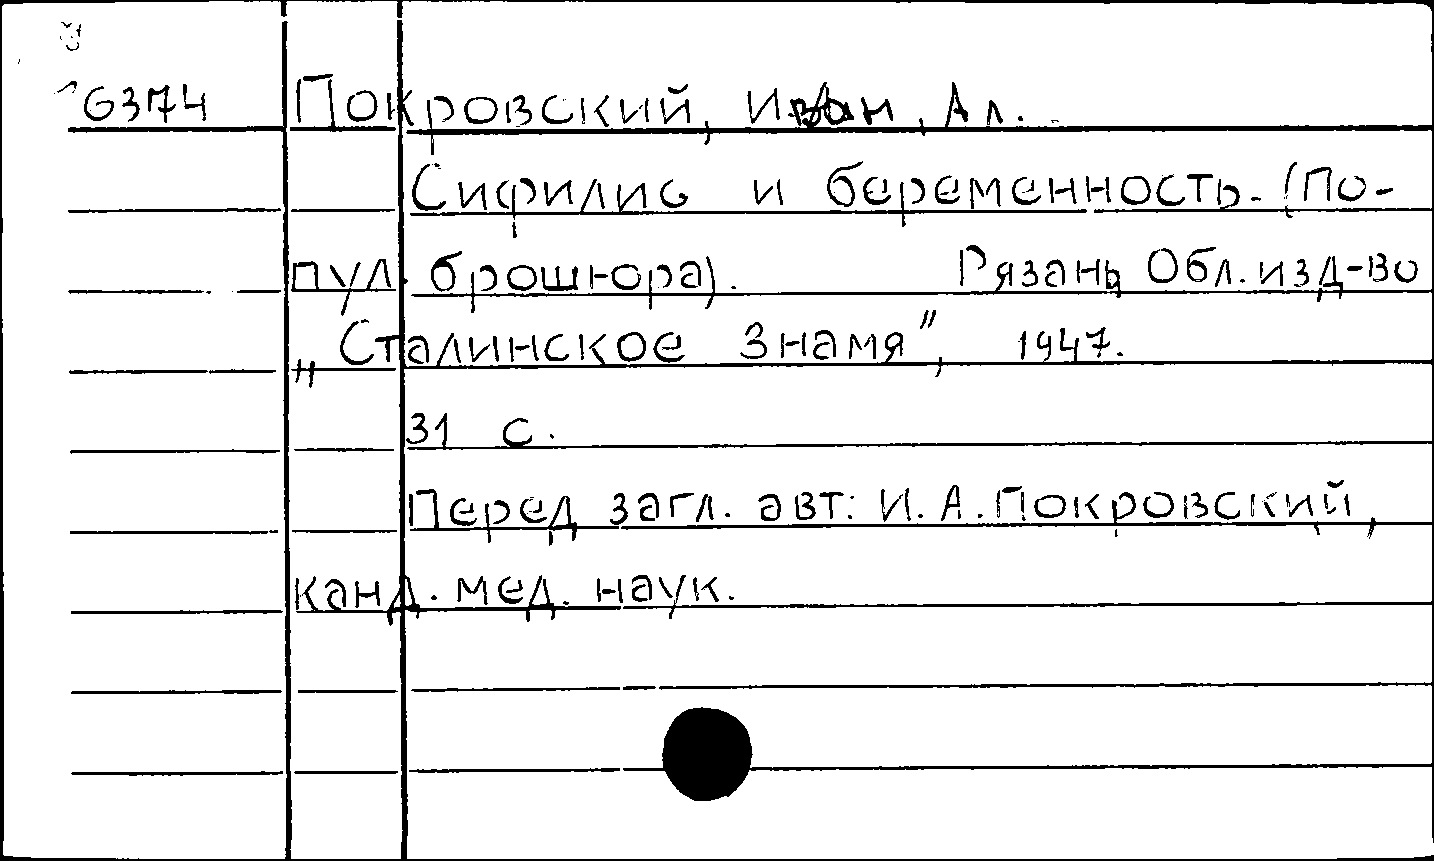 6374 Покровский, Иван, Ал.
Сифилис и беременность. (По-
пул. брошюра). Рязань, Обл. изд-во
„Сталинское Знамя", 1947.
31 с.
Перед загл. авт: И. А. Покровский,
канд. мед. наук.